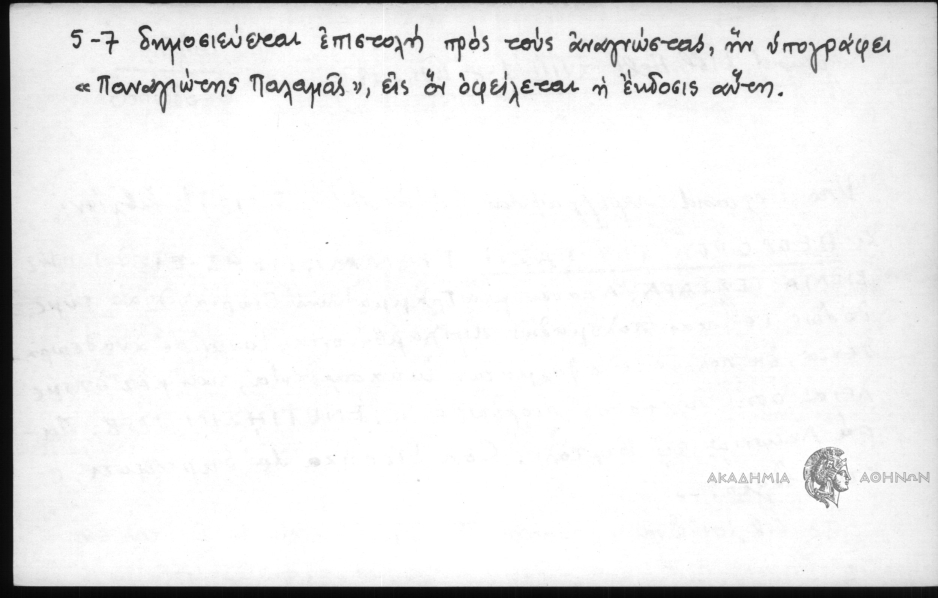 5-7 δημοσιεύεται ἐπιστολή πρός τούς ἀναγνώστας, ἥν ὑπογράφει
«Παναγιώτης Παλαμᾶς», εἰς ὅν ὀφείλεται ἡ ἔκδοσις αὕτη.
ΑΚΑΔΗΜΙΑ ΑΘΗΝΩΝ